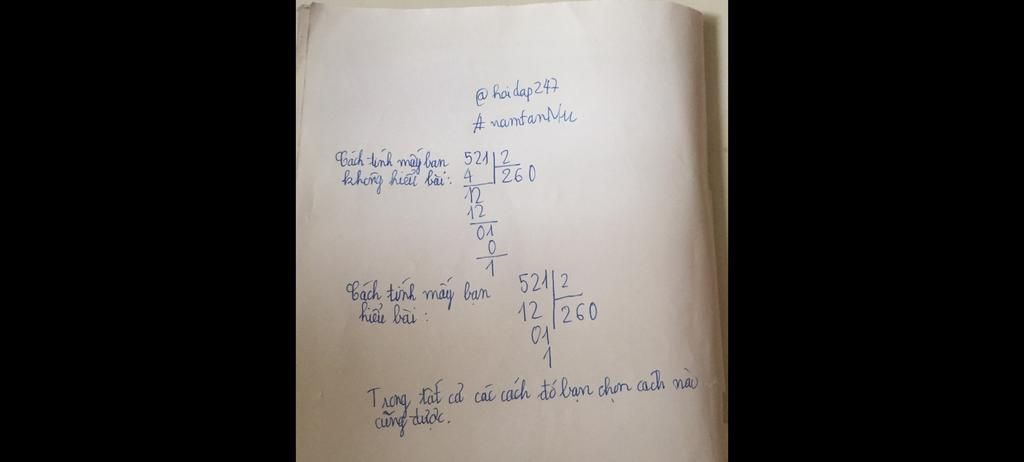 @hoidap247
#namtanMu
Cách tính mấy bạn 521 2
không hiểu bài: 4 260
12
12
01
0
1
Cách tính mấy bạn 521 2
hiểu bài: 12 260
01
1
Trong tất cả các cách đó bạn chọn cách nào
cũng được.